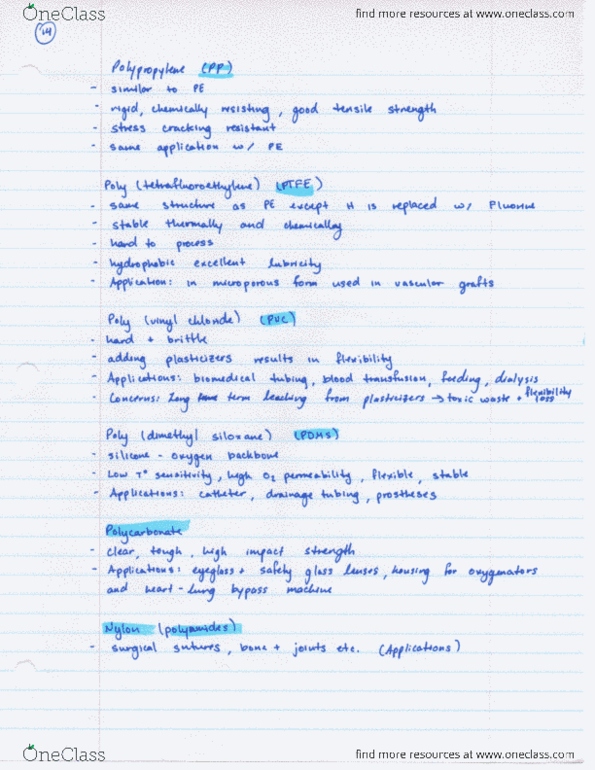 OneClass
find more resources at www.oneclass.com
14
Polypropylene (PP)
- similar to PE
- rigid, chemically resisting, good tensile strength
- stress cracking resistant
- same application w/ PE
Poly (tetrafluoroethylene) (PTFE)
- same structure as PE except H is replaced w/ Fluorine
- stable thermally and chemically
- hard to process
- hydrophobic excellent lubricity
- Application: in microporous form used in vascular grafts
Poly (vinyl chloride) (PVC)
- hard + brittle
- adding plasticizers results in flexibility
- Applications: biomedical tubing, blood transfusion, feeding, dialysis
- Concerns: Long term leaching from plasticizers → toxic waste + flexibility loss
Poly (dimethyl siloxane) (PDMS)
- silicone - oxygen backbone
- Low T° sensitivity, high O2 permeability, flexible, stable
- Applications: catheter, drainage tubing, prostheses
Polycarbonate
- clear, tough, high impact strength
- Applications: eyeglass + safety glass lenses, housing for oxygenators
and heart-lung bypass machine
Nylon (polyamides)
- surgical sutures, bone + joints etc. (Applications)
OneClass
find more resources at www.oneclass.com